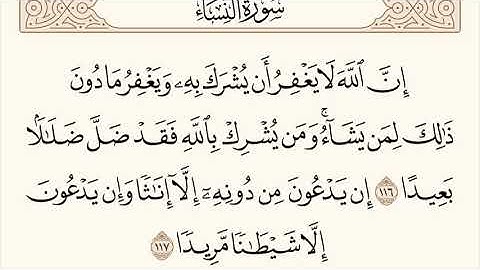 سُورَةُ النِّسَاءِ
إِنَّ ٱللَّهَ لَا يَغْفِرُ أَن يُشْرَكَ بِهِۦ وَيَغْفِرُ مَا دُونَ
ذَٰلِكَ لِمَن يَشَآءُۚ وَمَن يُشْرِكْ بِٱللَّهِ فَقَدْ ضَلَّ ضَلَٰلَۢا
بَعِيدًا ١١٦ إِن يَدْعُونَ مِن دُونِهِۦٓ إِلَّآ إِنَٰثًا وَإِن يَدْعُونَ
إِلَّا شَيْطَٰنًا مَّرِيدًا ١١٧